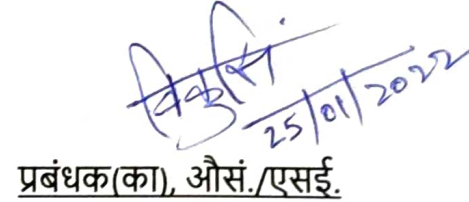 विकुसिं
25/01/2022
प्रबंधक(का), औसं./एसई.